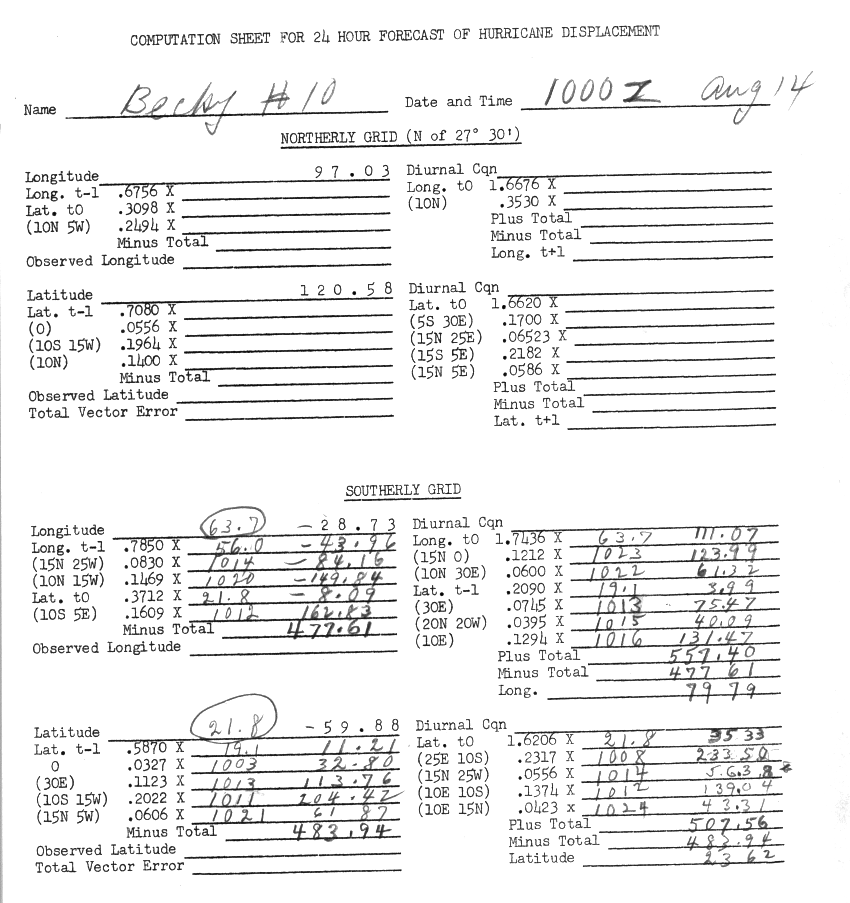 COMPUTATION SHEET FOR 24 HOUR FORECAST OF HURRICANE DISPLACEMENT
Name Becky #10 Date and Time 1000 Z Aug 14
NORTHERLY GRID (N of 27° 30')
Longitude 97.03
Long. t-1 .6756 X
Lat. t0 .3098 X
(10N 5W) .2494 X
Minus Total
Observed Longitude
Diurnal Cqn
Long. t0 1.6676 X
(10N) .3530 X
Plus Total
Minus Total
Long. t+1
Latitude 120.58
Lat. t-1 .7080 X
(0) .0556 X
(10S 15W) .1964 X
(10N) .1400 X
Minus Total
Observed Latitude
Total Vector Error
Diurnal Cqn
Lat. t0 1.6620 X
(5S 30E) .1700 X
(15N 25E) .06523 X
(15S 5E) .2182 X
(15N 5E) .0586 X
Plus Total
Minus Total
Lat. t+1
SOUTHERLY GRID
Longitude 63.7 -28.73
Long. t-1 .7850 X 56.0 -43.96
(15N 25W) .0830 X 1014 -84.16
(10N 15W) .1469 X 1020 -149.84
Lat. t0 .3712 X 21.8 -8.09
(10S 5E) .1609 X 1012 162.83
Minus Total 477.61
Observed Longitude
Diurnal Cqn
Long. t0 1.7436 X 63.7 111.07
(15N 0) .1212 X 1023 123.99
(10N 30E) .0600 X 1022 61.32
Lat. t-1 .2090 X 19.1 3.99
(30E) .0745 X 1013 75.47
(20N 20W) .0395 X 1015 40.09
(10E) .1294 X 1016 131.47
Plus Total 557.40
Minus Total 477 61
Long. 79 79
Latitude 21.8 -59.88
Lat. t-1 .5870 X 19.1 11.21
0 .0327 X 1003 32.80
(30E) .1123 X 1013 113.76
(10S 15W) .2022 X 1011 204.42
(15N 5W) .0606 X 1021 61 87
Minus Total 483.94
Observed Latitude
Total Vector Error
Diurnal Cqn
Lat. t0 1.6206 X 21.8 35 33
(25E 10S) .2317 X 1008 233.50
(15N 25W) .0556 X 1014 56.38
(10E 10S) .1374 X 1012 139.04
(10E 15N) .0423 X 1024 43.31
Plus Total 507.56
Minus Total 483.94
Latitude 23 62